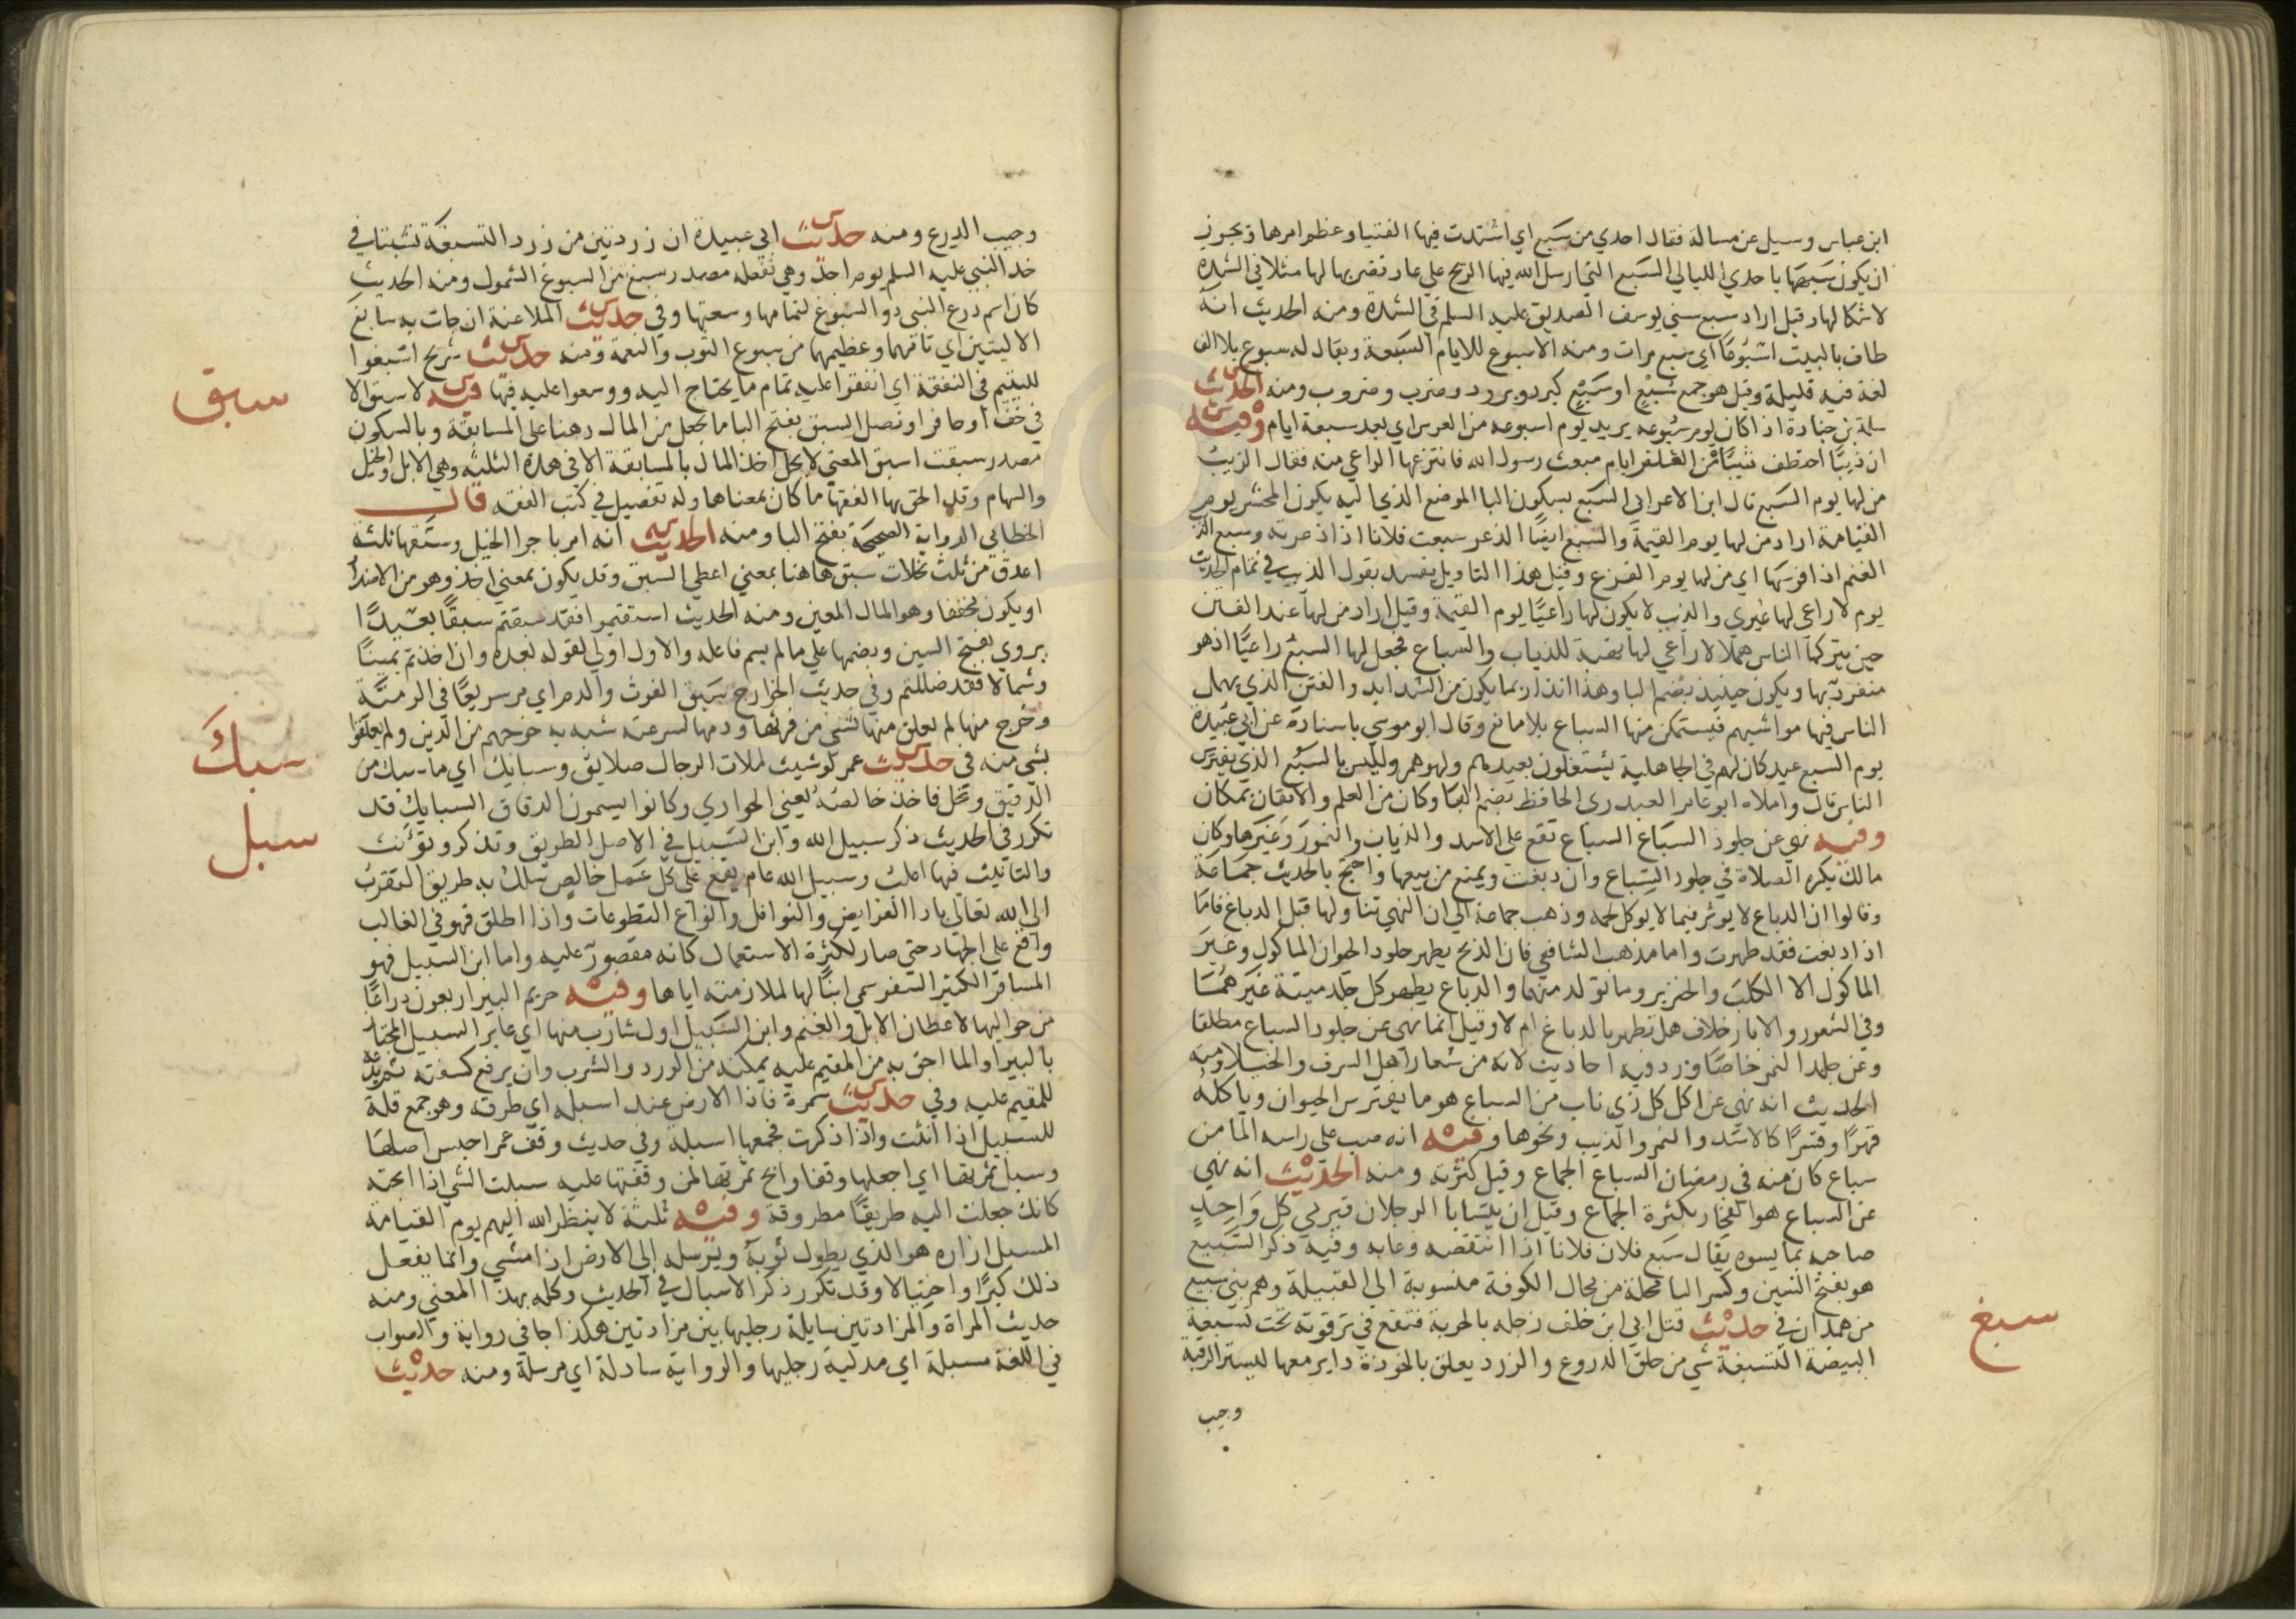 ابن عباس وسيل عن مسالة فقال احدي من سبع اي اشتدت فيها الفتيا وعظم امرها ويجوز
ان يكون شبهها باحدي الليالي السبع التي ارسل الله فيها الريح علي عاد فضربها لها مثلا في الشدة
لاشكالها وقيل اراد سبع سني يوسف الصديق عليه السلم في الشدة ومنه الحديث انه
طاف بالبيت اسبوعا اي سبع مرات ومنه الاسبوع للايام السبعة ويقال له سبوع بلا الف
لغة فيه قليلة وقيل هو جمع سبع او سبع كبرد وبرود وضرب وضروب ومنه الحديث
سلمة بن جنادة اذا كان يوم سبوعه يريد يوم اسبوعه من العرس اي بعد سبعة ايام وفيه
ان ذيبا اختطف شاة من الغنم ايام مبعث رسول الله فانتزعها الراعي منه فقال الذيب
من لها يوم السبع قال ابن الاعرابي السبع بسكون البا الموضع الذي اليه يكون المحشر يوم
القيامة اراد من لها يوم القيمة والسبع ايضا الذعر سبعت فلانا اذا ذعرته وسبع الذيب
الغنم اذا افرسها اي من لها يوم الفزع وقيل هذا التاويل يفسد بقول الذيب في تمام الحديث
يوم لا راعي لها غيري والذيب لا يكون لها راعيا يوم القيمة وقيل اراد من لها عند الفتن
حين يتركها الناس هملا لا راعي لها نهبة للذياب والسباع فجعل لها السبع راعيا اذ هو
منفرد بها ويكون حينيذ بضم البا وهذا انذار بما يكون من الشدايد والفتن الذي يهمل
الناس فيها مواشيهم فيستمكن منها السباع بلا مانع وقال ابو موسي باسناده عن ابي عبيدة
يوم السبع عيد كان لهم في الجاهلية يشتغلون بعيدهم ولهوهم وليس بالسبع الذي يفترس
الناس قال واملاه ابو عامر العبدري الحافظ بضم البا وكان من العلم والاتقان بمكان
وفيه نهي عن جلود السباع السباع تقع علي الاسد والذياب والنمور وغيرها وكان
مالك يكره الصلاة في جلود السباع وان دبغت ويمنع من بيعها واحتج بالحديث جماعة
وقالوا ان الدباغ لا يوثر فيما لا يوكل لحمه وذهب جماعة الي ان النهي تناولها قبل الدباغ فاما
اذا دبغت فقد طهرت واما مذهب الشافعي فان الذبح يطهر جلود الحيوان الماكول وغير
الماكول الا الكلب والخنزير وما تولد منهما والدباغ يطهر كل جلد ميتة غيرهما
وفي الشعور والاوبار خلاف هل تطهر بالدباغ ام لا وقيل انما نهي عن جلود السباع مطلقا
وعن جلد النمر خاصا ورد فيه احاديث لانه من شعار اهل السرف والخيلا ومنه
الحديث انه نهي عن اكل كل ذي ناب من السباع هو ما يفترس الحيوان وياكله
قهرا وقسرا كالاسد والنمر والذيب ونحوها وفيه انه صب علي راسه الما من
سباع كان منه في رمضان السباع الجماع وقيل كثرته ومنه الحديث انه نهي
عن السباع هو الفخار بكثرة الجماع وقيل ان يتسابا الرجلان فيرمي كل واحد
صاحبه بما يسوه يقال سبع فلان فلانا اذا انتقصه وعابه وفيه ذكر السبيع
هو بفتح السين وكسر البا محلة من محال الكوفة منسوبة الي القبيلة وهم بني سبيع
من همدان في حديث قتل ابي ابن خلف زجله بالحربة فتقع في ترقوته تحت تسبغة
البيضة التسبغة شي من حلق الدروع والزرد يعلق بالخوذة داير معها ليستر الرقبة
وجيب
سبغ
وجيب الدرع ومنه حديث ابي عبيدة ان زردتين من زرد التسبغة نشبتا في
خد النبي عليه السلم يوم احد وهي تفعله مصدر سبغ من السبوغ الشمول ومنه الحديث
كان اسم درع النبي ذو السبوغ لتمامها وسعتها وفي حديث الملاعنة ان جات به سابغ
الاليتين اي تامهما وعظيمهما من سبوغ الثوب والنعمة ومنه حديث شريح اسبغوا
لليتيم في النفقة اي انفقوا عليه تمام ما يحتاج اليه ووسعوا عليه فيها وفيه لا سبق الا
في خف او حافر او نصل السبق بفتح البا ما يجعل من المال رهنا علي المسابقة وبالسكون
مصدر سبقت اسبق المعني لا يحل اخذ المال بالمسابقة الا في هذه الثلثه وهي الابل والخيل
والسهام وقد الحق بها الفقها ما كان بمعناها وله تفصيل في كتب الفقه قال
الخطابي الرواية الصحيحة بفتح البا ومنه الحديث انه امر باجرا الخيل وسبقها ثلثة
اعذق من ثلث نخلات سبق هاهنا بمعني اعطي السبق وقد يكون بمعني اخذ وهو من الاضداد
او يكون مخففا وهو المال المعين ومنه الحديث استقيموا فقد سبقتم سبقا بعيدا
يروي بفتح السين وبضمها علي ما لم يسم فاعله والاول اولي لقوله بعده وان اخذتم يمينا
وشمالا فقد ضللتم وفي حديث الخوارج سبق الفرث والدم اي مر سريعا في الرمية
وخرج منها لم يعلق منها بشي من فرثها ودمها لسرعته شبه به خروجهم من الدين ولم يعلقوا
بشي منه في حديث عمر لو شيت لملات الرحال صلايق وسبايك اي ما سبك من
الدقيق ونخل فاخذ خالصه يعني الحواري وكانوا يسمون الدقاق السبايك قد
تكرر في الحديث ذكر سبيل الله وابن السبيل في الاصل الطريق وتذكر وتونث
والتانيث فيها اغلب وسبيل الله عام يقع علي كل عمل خالص سلك به طريق التقرب
الي الله تعالي بادا الفرايض والنوافل وانواع التطوعات واذا اطلق فهو في الغالب
واقع علي الجهاد حتي صار لكثرة الاستعمال كانه مقصور عليه واما ابن السبيل فهو
المسافر الكثير السفر سمي ابنا لها لملازمته اياها وفيه حريم البير اربعون ذراعا
من حواليها لاعطان الابل والغنم وابن السبيل اول شارب منها اي عابر السبيل المجتاز
بالبير او الما احق به من المقيم عليه يمكنه من الورد والشرب وان يرفع لسفته ثم يدعه
للمقيم عليه وفي حديث سمرة فاذا الارض عند اسبله اي طرقه وهو جمع قلة
للسبيل اذا انثت واذا ذكرت فجمعها اسبلة وفي حديث وقف عمر احبس اصلها
وسبل ثمرتها اي اجعلها وقفا وابح ثمرتها لمن وقفتها عليه سبلت الشي اذا ابحته
كانك جعلت اليه طريقا مطروقة وفيه ثلثة لا ينظر الله اليهم يوم القيامة
المسبل ازاره هو الذي يطول ثوبه ويرسله الي الارض اذا مشي وانما يفعل
ذلك كبرا واختيالا وقد تكرر ذكر الاسبال في الحديث وكله بهذا المعني ومنه
حديث المراة والمزادتين سابلة رجليها بين مزادتين هكذا جا في رواية والصواب
في اللغة مسبلة اي مدلية رجليها والرواية سادلة اي مرسلة ومنه حديث
سبق
سبك
سبل